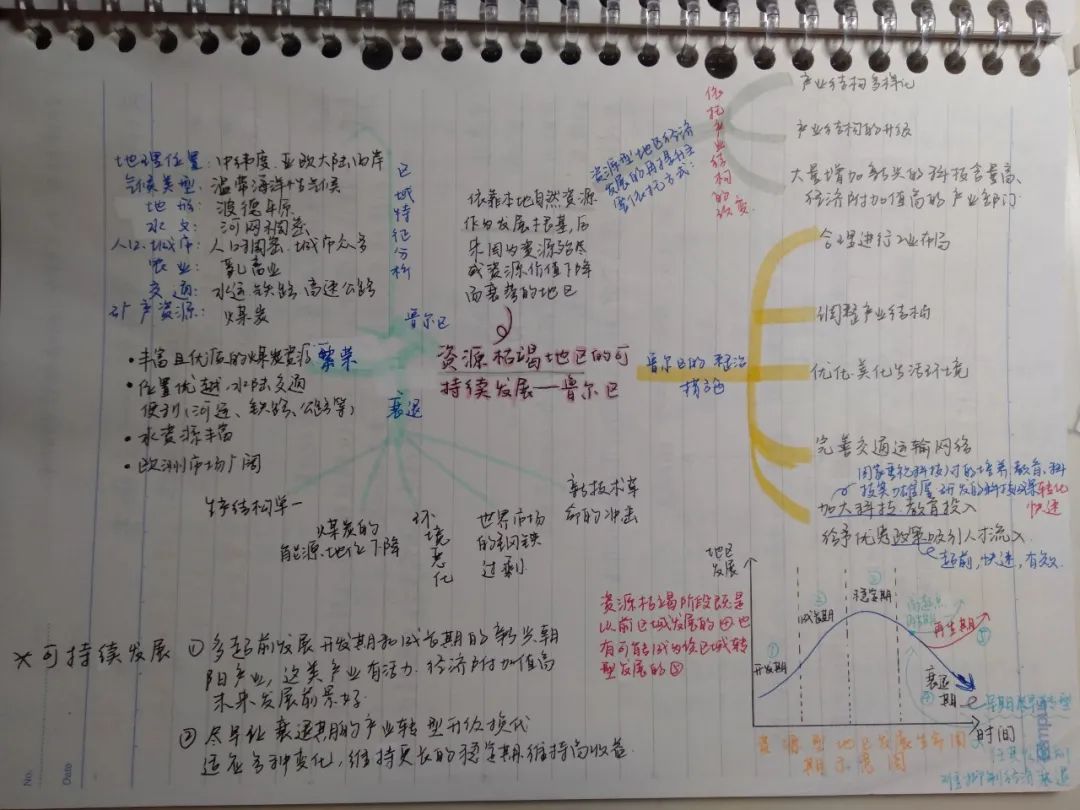 资源枯竭地区的可
持续发展——鲁尔区
地理位置：中纬度、亚欧大陆西岸
气候类型：温带海洋性气候
地形：波德平原
水文：河网稠密
人口、城市：人口稠密、城市众多
农业：乳畜业
交通：水运、铁路、高速公路
矿产资源：煤炭
区域特征分析
鲁尔区
依靠本地自然资源
作为发展根基，后
来因为资源殆尽
或资源价值下降
而衰势的地区
资源型地区经济
发展的再提升主
要依托方式：
依托产业结构的改变
产业结构多样化
产业结构的升级
大量增加新兴的科技含量高、
经济附加值高的产业部门
鲁尔区的整治
措施
合理进行工业布局
调整产业结构
优化、美化生活环境
完善交通运输网络
国家重视科技人才的培养、教育、科
技实力雄厚，研发的科技成果转化
快速
加大科技、教育投入
给予优秀政策吸引人才流入
超前，快速，有效
繁荣
• 丰富且优质的煤炭资源
• 位置优越、水陆交通
便利（河运、铁路、公路等）
• 水资源丰富
• 欧洲市场广阔
衰退
生产结构单一
煤炭的
能源地位下降
环境恶化
世界市场
的钢铁
过剩
新技术革
命的冲击
资源枯竭阶段既是
以前区域发展的④也
有可能成为该区域转
型发展的⑤
地区
发展
开发期
②
成长期
③
稳定期
④
衰退
期
再生期
⑤
时间
资源型地区发展生命周
期示意图
难抑制经济衰退
* 可持续发展 ① 多超前发展开发期和成长期的新兴朝
阳产业，这类产业有活力、经济附加值高
未来发展前景好
② 尽早让衰退期的产业转型升级换代
适应各种变化，维持更长的稳定期、维持高收益
No.
Date